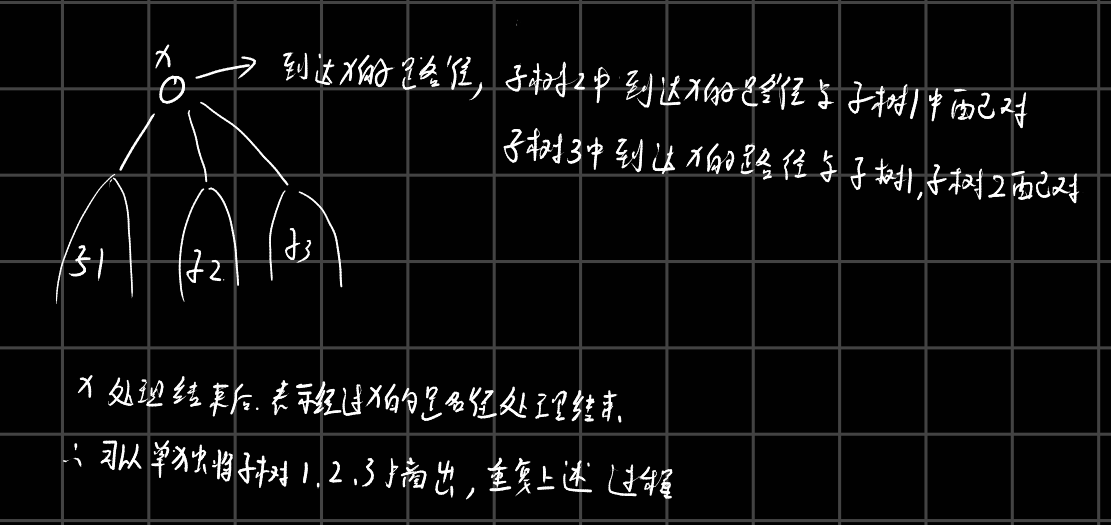 x
到达x的路径, 子树2中到达x的路径与子树1中配对
子树3中到达x的路径与子树1,子树2配对
子1
子2
子3
x处理结束后.表示经过x的路径处理结束.
∴ 可以单独将子树1.2.3摘出,重复上述过程